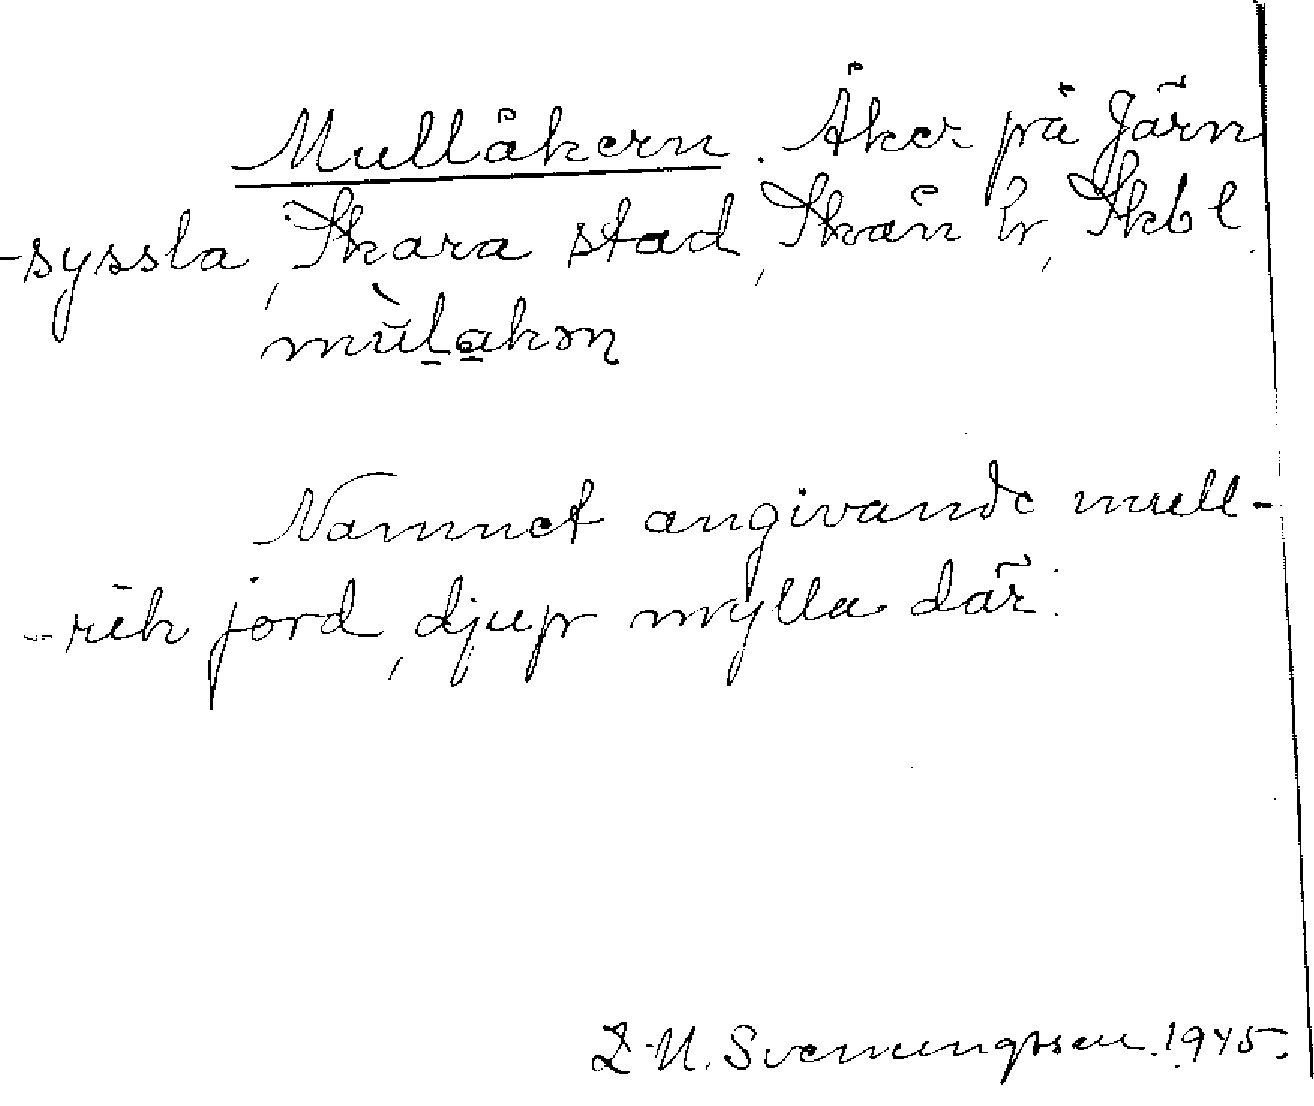 Mullåkern. Åker på Järn
-syssla, Skara stad, Skån hr, Skbl.
mùlakən
Namnet angivande mull-
-rik jord, djup mylla där.
Z. M. Svenungsson. 1945.